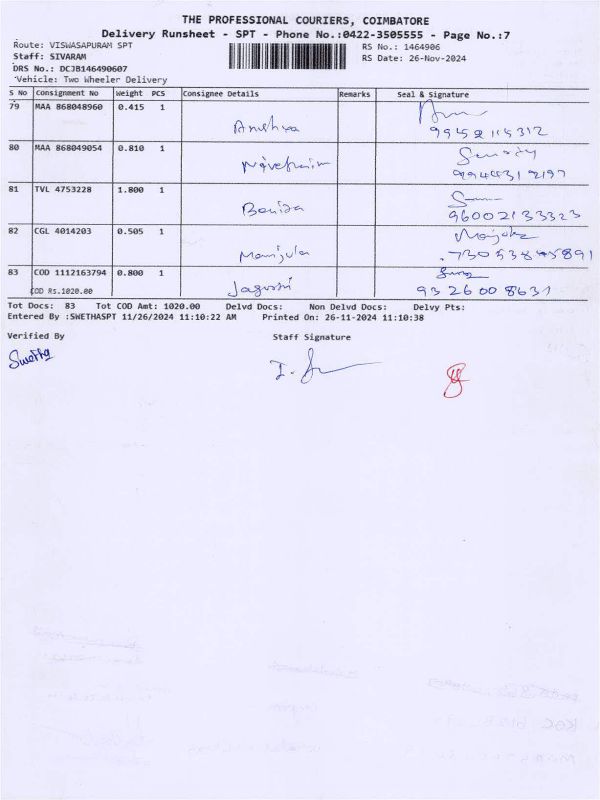 THE PROFESSIONAL COURIERS, COIMBATORE
Delivery Runsheet - SPT - Phone No.:0422-3505555 - Page No.:7
Route: VISWASAPURAM SPT
RS No.: 1464906
Staff: SIVARAM
RS Date: 26-Nov-2024
DRS No.: DCJB146490607
Vehicle: Two Wheeler Delivery
S No Consignment No Weight PCS Consignee Details Remarks Seal & Signature
79 MAA 868048960 0.415 1
Anushya
80 MAA 868049054 0.810 1
81 TVL 4753228 1.800 1
96002133323
82 CGL 4014203 0.505 1
Manjula
83 COD 1112163794 0.800 1
COD Rs.1020.00
9326008631
Tot Docs: 83 Tot COD Amt: 1020.00 Delvd Docs: Non Delvd Docs: Delvy Pts:
Entered By :SWETHASPT 11/26/2024 11:10:22 AM Printed On: 26-11-2024 11:10:38
Verified By Staff Signature
Swetha